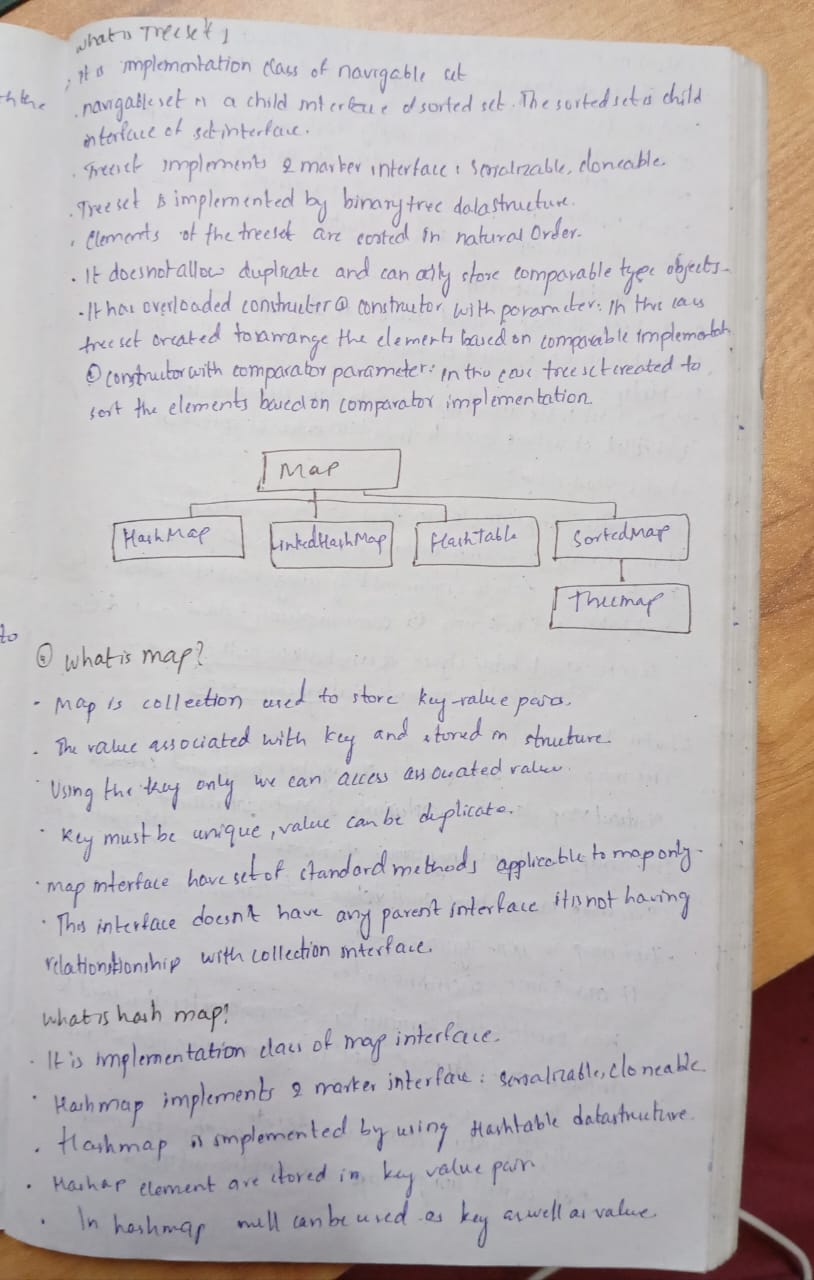 what is Treeset?
, It is implementation class of navigable set
th the
. navigable set is a child interface of sorted set. The sorted set is child
interface of set interface.
. Treeset implements 2 marker interface : Serializable, cloneable.
. Treeset is implemented by binary tree datastructure.
. Elements of the treeset are sorted in natural Order.
. It does not allow duplicate and can only store comparable type objects.
. It has overloaded constructor constructor with parameter: In this case
treeset created to arrange the elements based on comparable implementation
constructor with comparator parameter: in this case treeset created to
sort the elements based on comparator implementation.
Map
HashMap LinkedHashMap HashTable SortedMap
Threemap
to
what is map?
. Map is collection used to store key-value pairs.
. The value associated with key and stored in structure.
. Using the key only we can access associated value.
. Key must be unique, value can be duplicate.
. map interface have set of standard methods applicable to map only.
. This interface doesn't have any parent interface it is not having
relationship with collection interface.
what is hash map?
. It is implementation class of map interface.
. Hashmap implements 2 marker interface : Serializable, cloneable
. Hashmap is implemented by using Hashtable datastructure.
. Hashap element are stored in key value pair
. In hashmap null can be used as key as well as value.